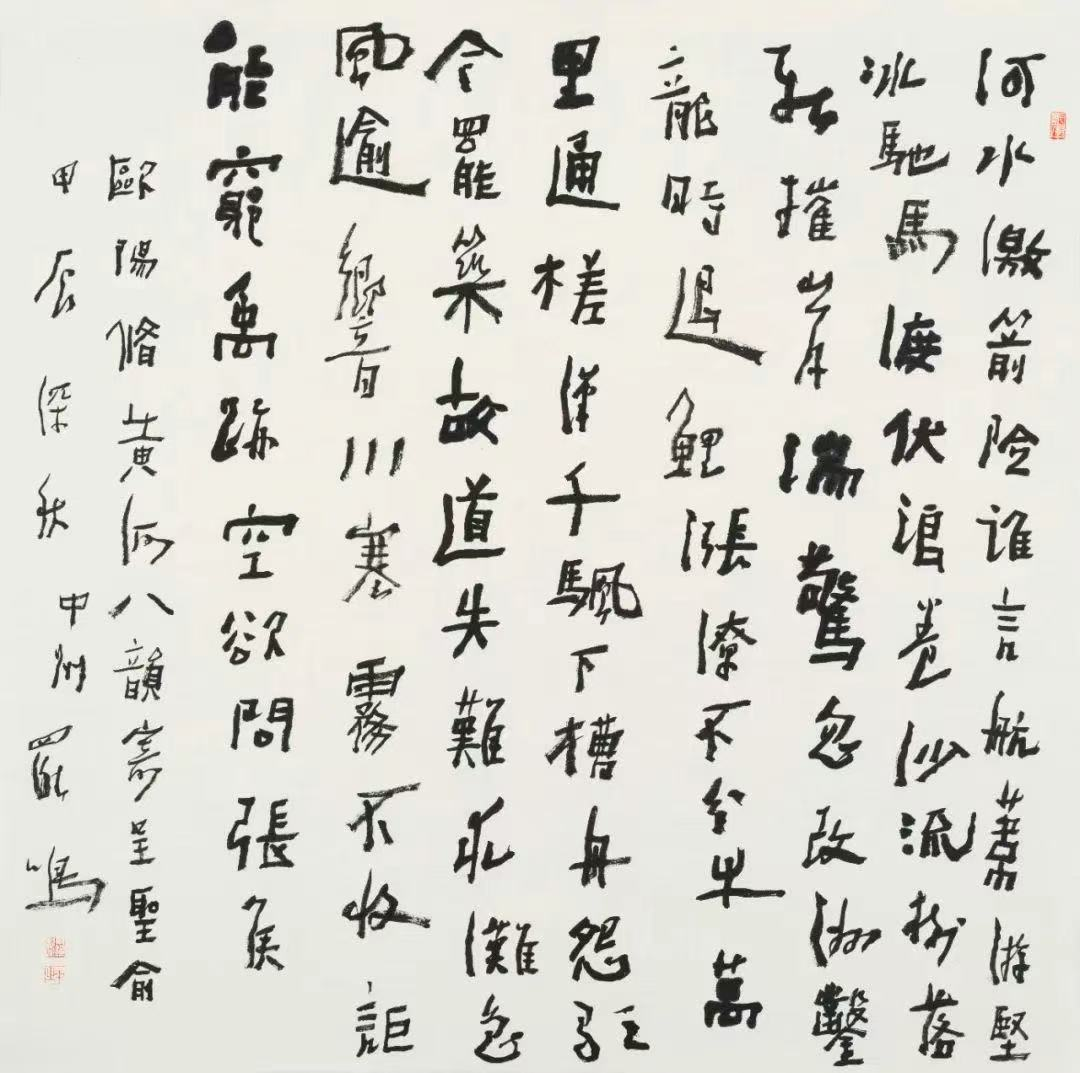 河水激箭險誰言航葦游堅
冰馳馬渡伏浪卷沙流樹落
新摧岸湍驚忽改洲鑿
龍時退鯉漲潦不分牛萬
里通槎漢千颿下槽舟怨
今罷築故道失難求灘急
風逾響川塞霧不收詎
能窮禹跡空欲問張侯
歐陽脩黃河八韻寄呈聖俞
甲辰深秋中州罷鳴